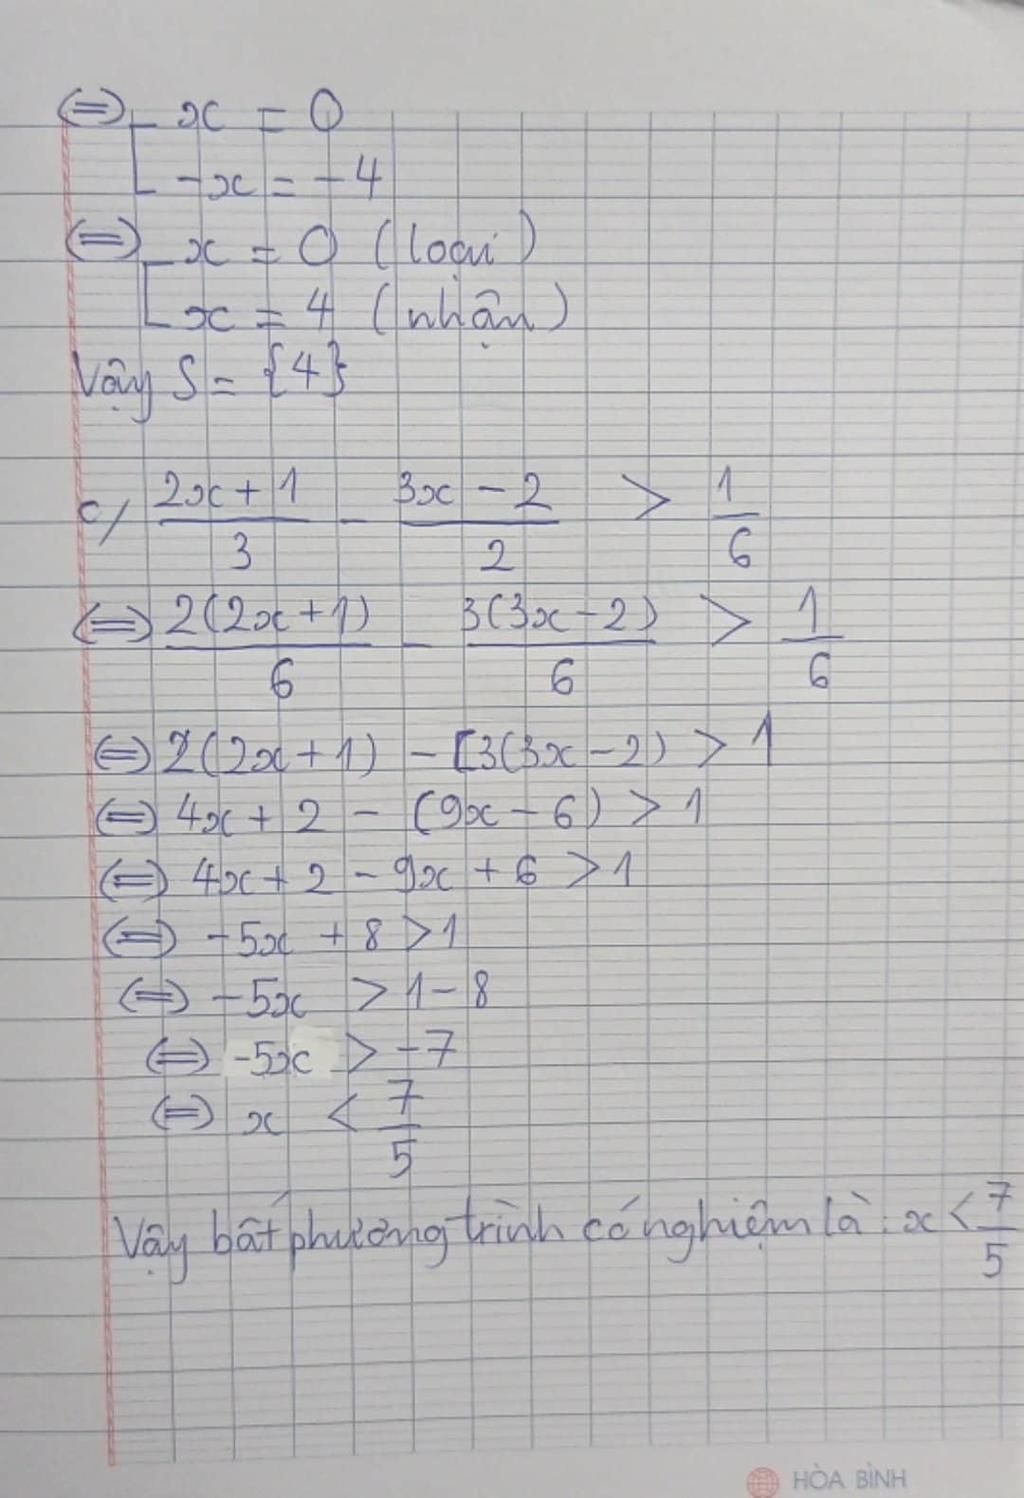 ⇔ [ x = 0
[ -x = -4
⇔ [ x = 0 (loại)
[ x = 4 (nhận)
Vậy S = {4}
c/ (2x + 1)/3 - (3x - 2)/2 > 1/6
⇔ 2(2x + 1)/6 - 3(3x - 2)/6 > 1/6
⇔ 2(2x + 1) - [3(3x - 2) > 1
⇔ 4x + 2 - (9x - 6) > 1
⇔ 4x + 2 - 9x + 6 > 1
⇔ -5x + 8 > 1
⇔ -5x > 1 - 8
⇔ -5x > -7
⇔ x < 7/5
Vậy bất phương trình có nghiệm là: x < 7/5
HÒA BÌNH